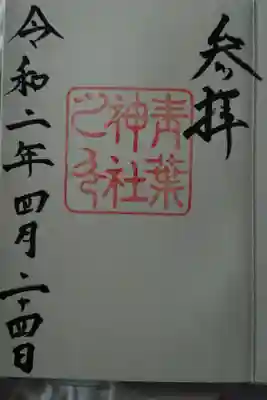 参拝
青葉
神社
之印
令和二年四月二十四日